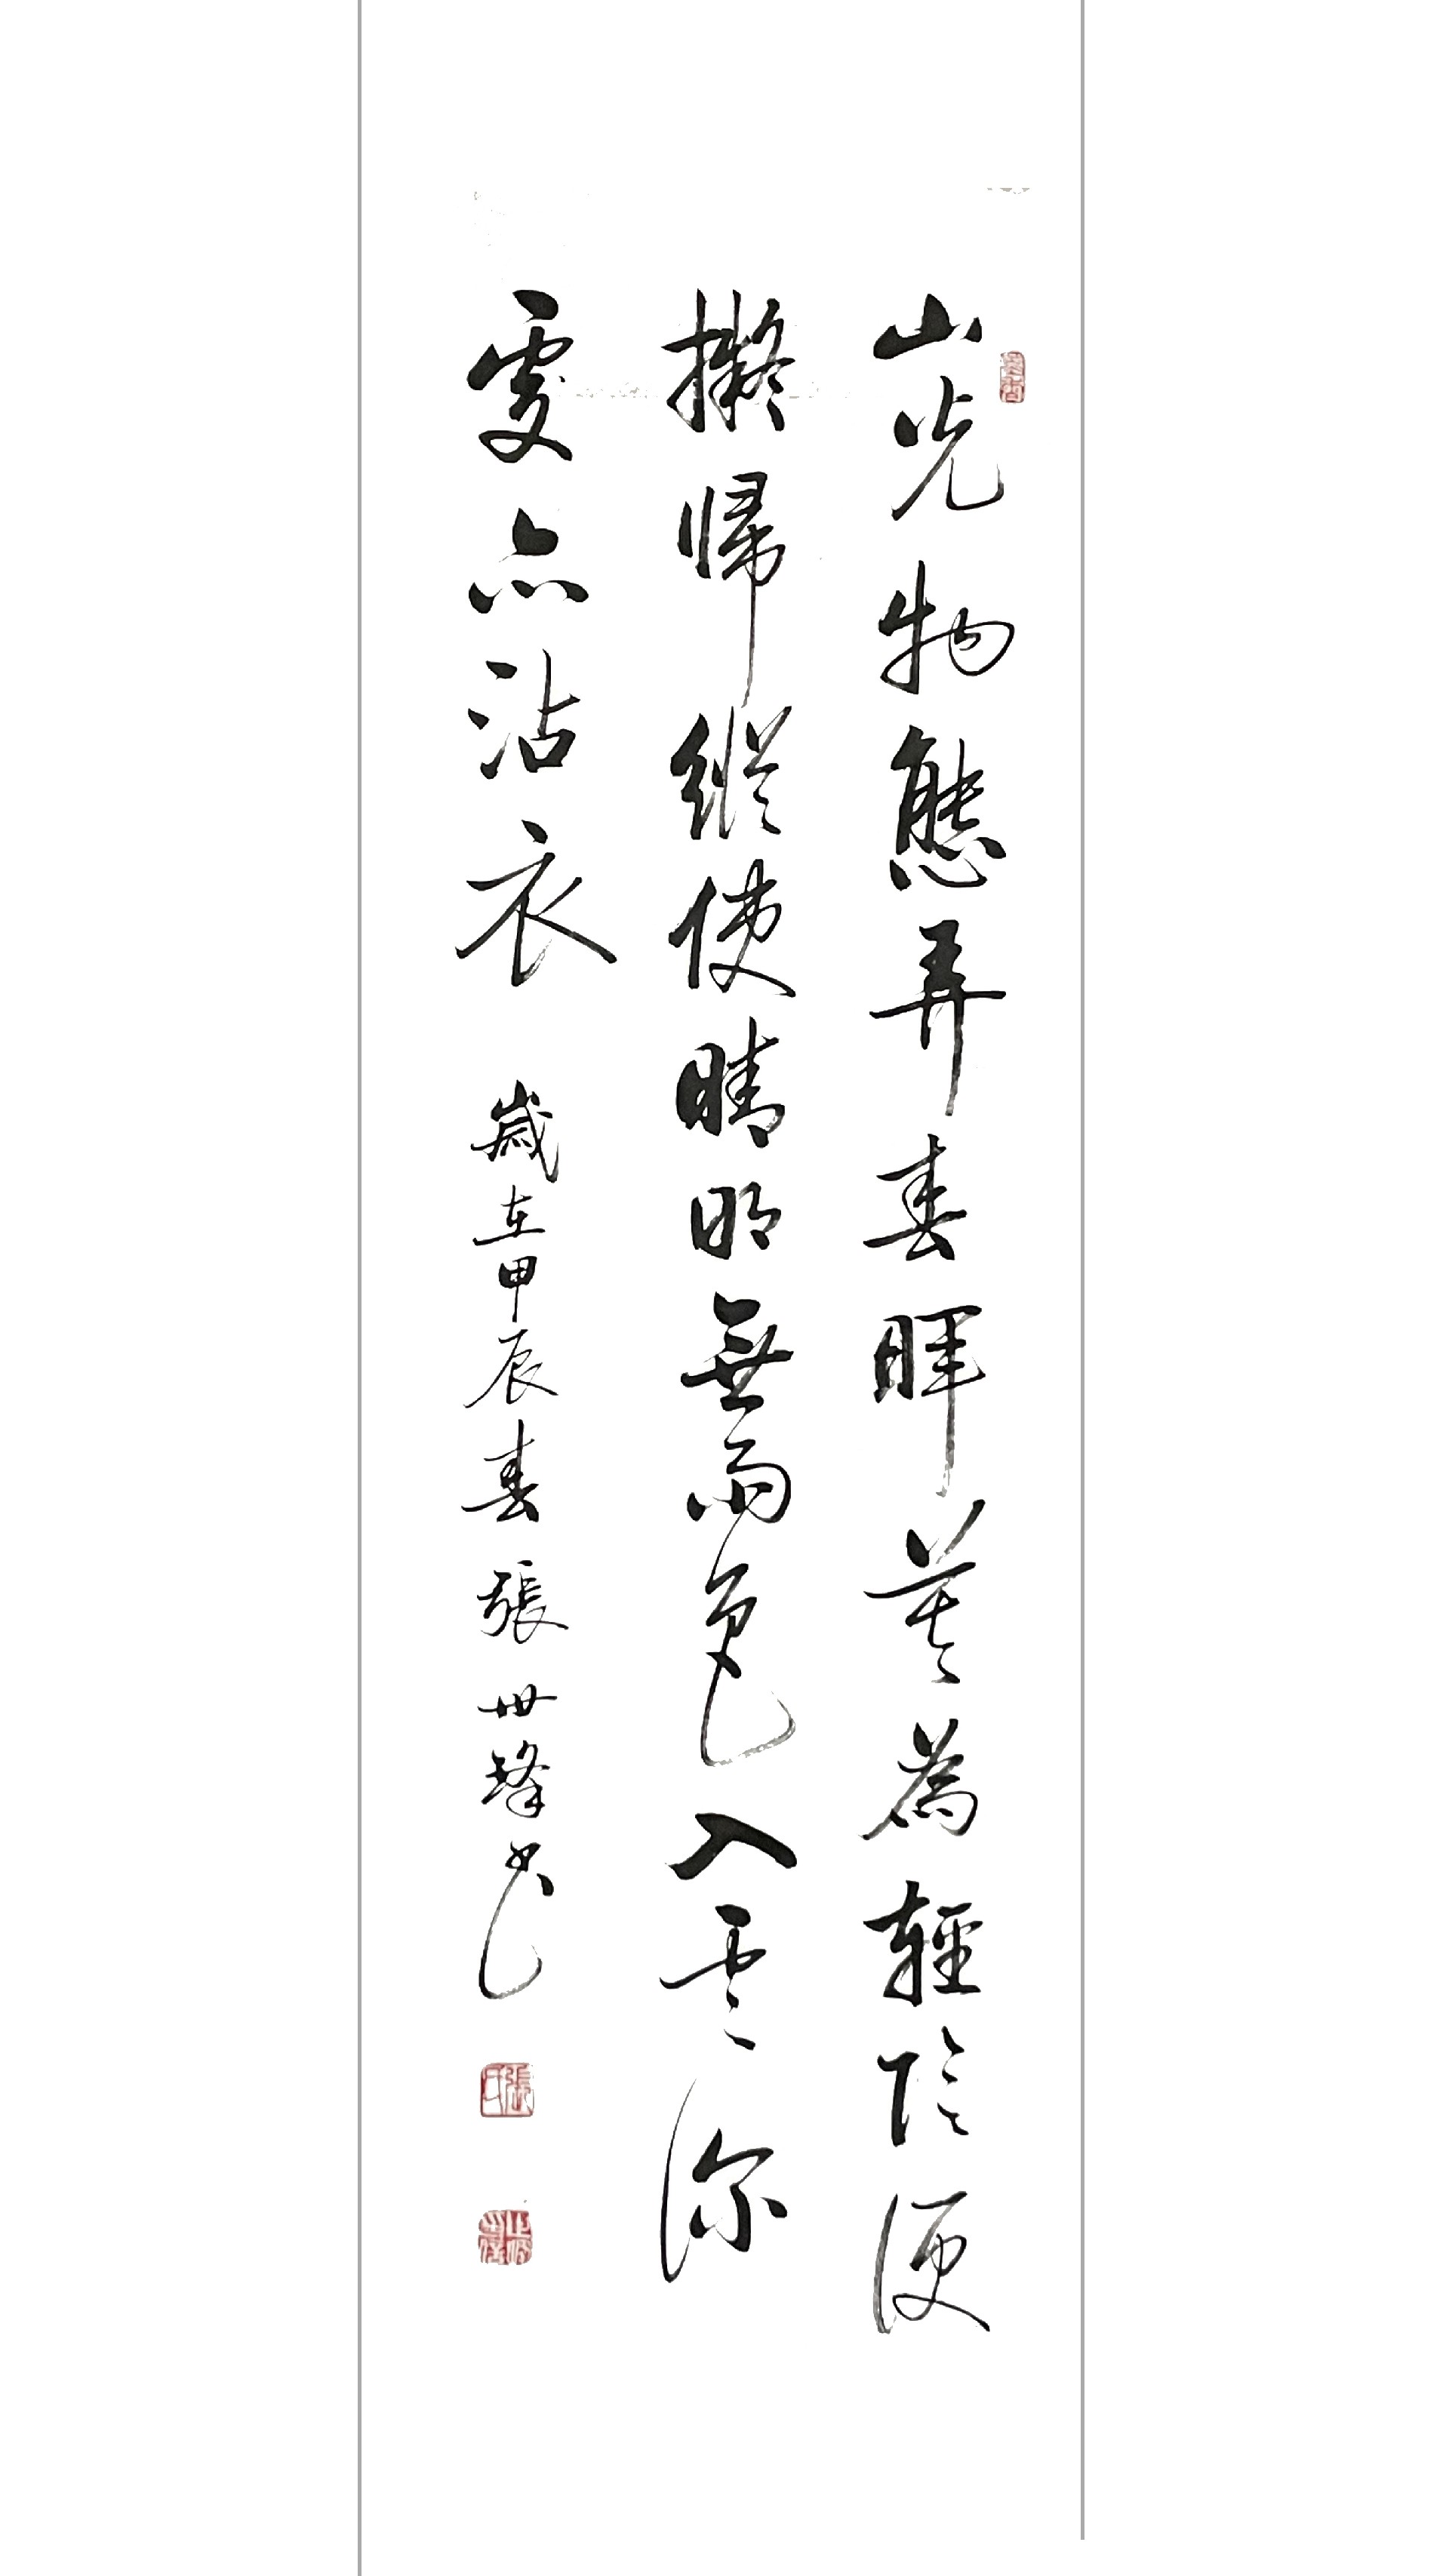 山光物態弄春暉莫為輕陰便
擬歸縱使晴明無雨色入雲深
處亦沾衣
歲在甲辰春張世峰書
張氏